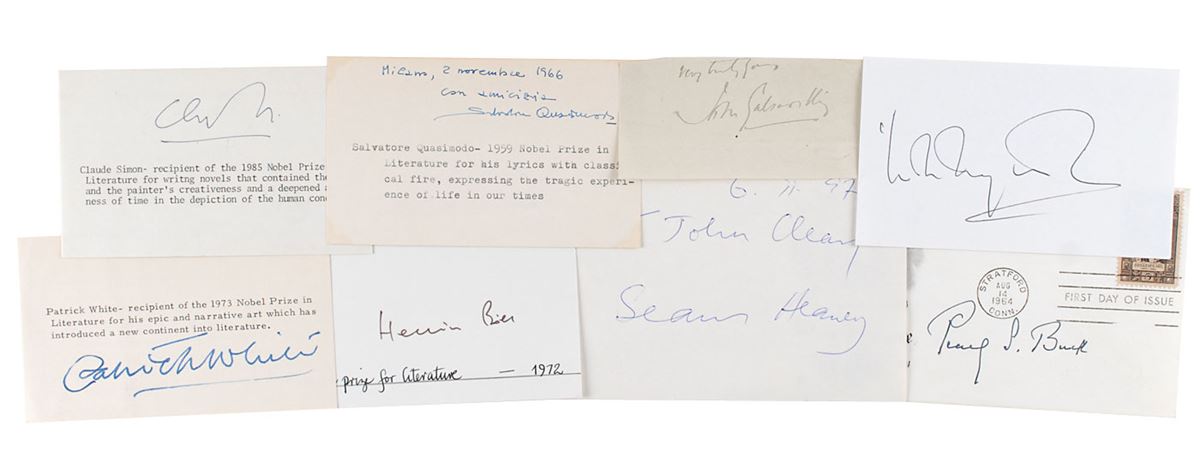 Claude Simon- recipient of the 1985 Nobel Prize
Literature for writng novels that contained the
and the painter's creativeness and a deepened a
ness of time in the depiction of the human con
Milano, 2 novembre 1966
con amicizia
Salvatore Quasimodo
Salvatore Quasimodo- 1959 Nobel Prize in
Literature for his lyrics with classi
cal fire, expressing the tragic experi-
ence of life in our times
very truly yours
John Galsworthy
6. II. 97
John Cleary
Seamus Heaney
Patrick White- recipient of the 1973 Nobel Prize in
Literature for his epic and narrative art which has
introduced a new continent into literature.
Patrick White
prize for literature — 1972
STRATFORD
AUG
14
1964
CONN.
FIRST DAY OF ISSUE
Pearl S. Buck